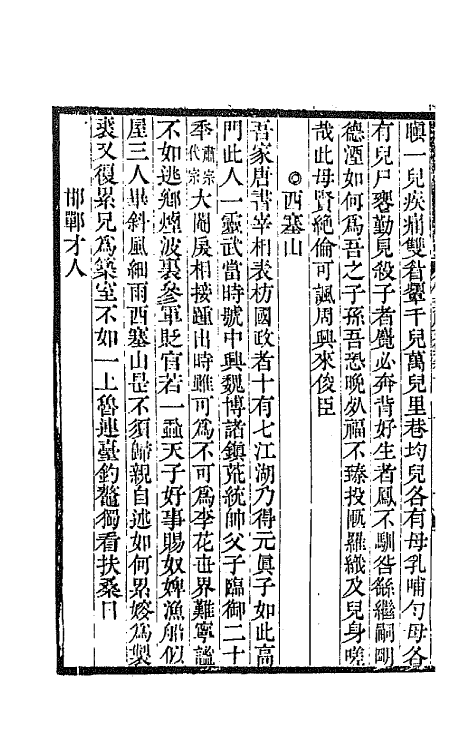 瞋一兒疾痛雙眥顰千兒萬兒里巷均兒各有母乳哺勻母各
有兒尸饔勤見殺子者麑必奔背好生者鳳不馴咎繇繼嗣明
德湮如何為吾之子孫吾恐晚歲福不臻投匭羅織及兒身嗟
哉此母賢絶倫可諷周興來俊臣
◎西塞山
吾家唐書宰相表枋國政者十有七江湖乃得元眞子如此高
門此人一靈武當時號中興魏博諸鎮荒統帥父子臨御二十
年肅宗代宗大閹展相接踵出時雖可為不可為李花世界難寧謐
不如逃鄉煙波裏參軍貶官若一蝨天子好事賜奴婢漁船似
屋三人畢斜風細雨西塞山是不須歸親自述如何累嫂為製
裘又復累兄為築室不如一上魯連臺釣鼇獨看扶桑日
邯鄲才人